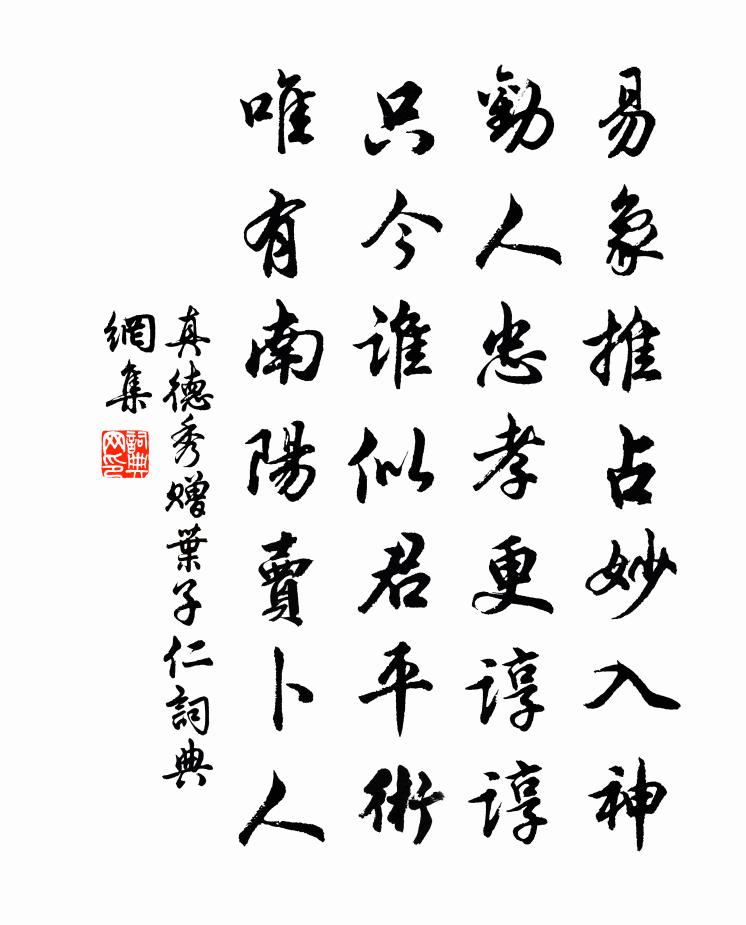 易象推占妙入神
勸人忠孝更諄諄
只今誰似君平術
唯有南陽賣卜人
真德秀贈葉子仁詞典
網集
詞典
网印